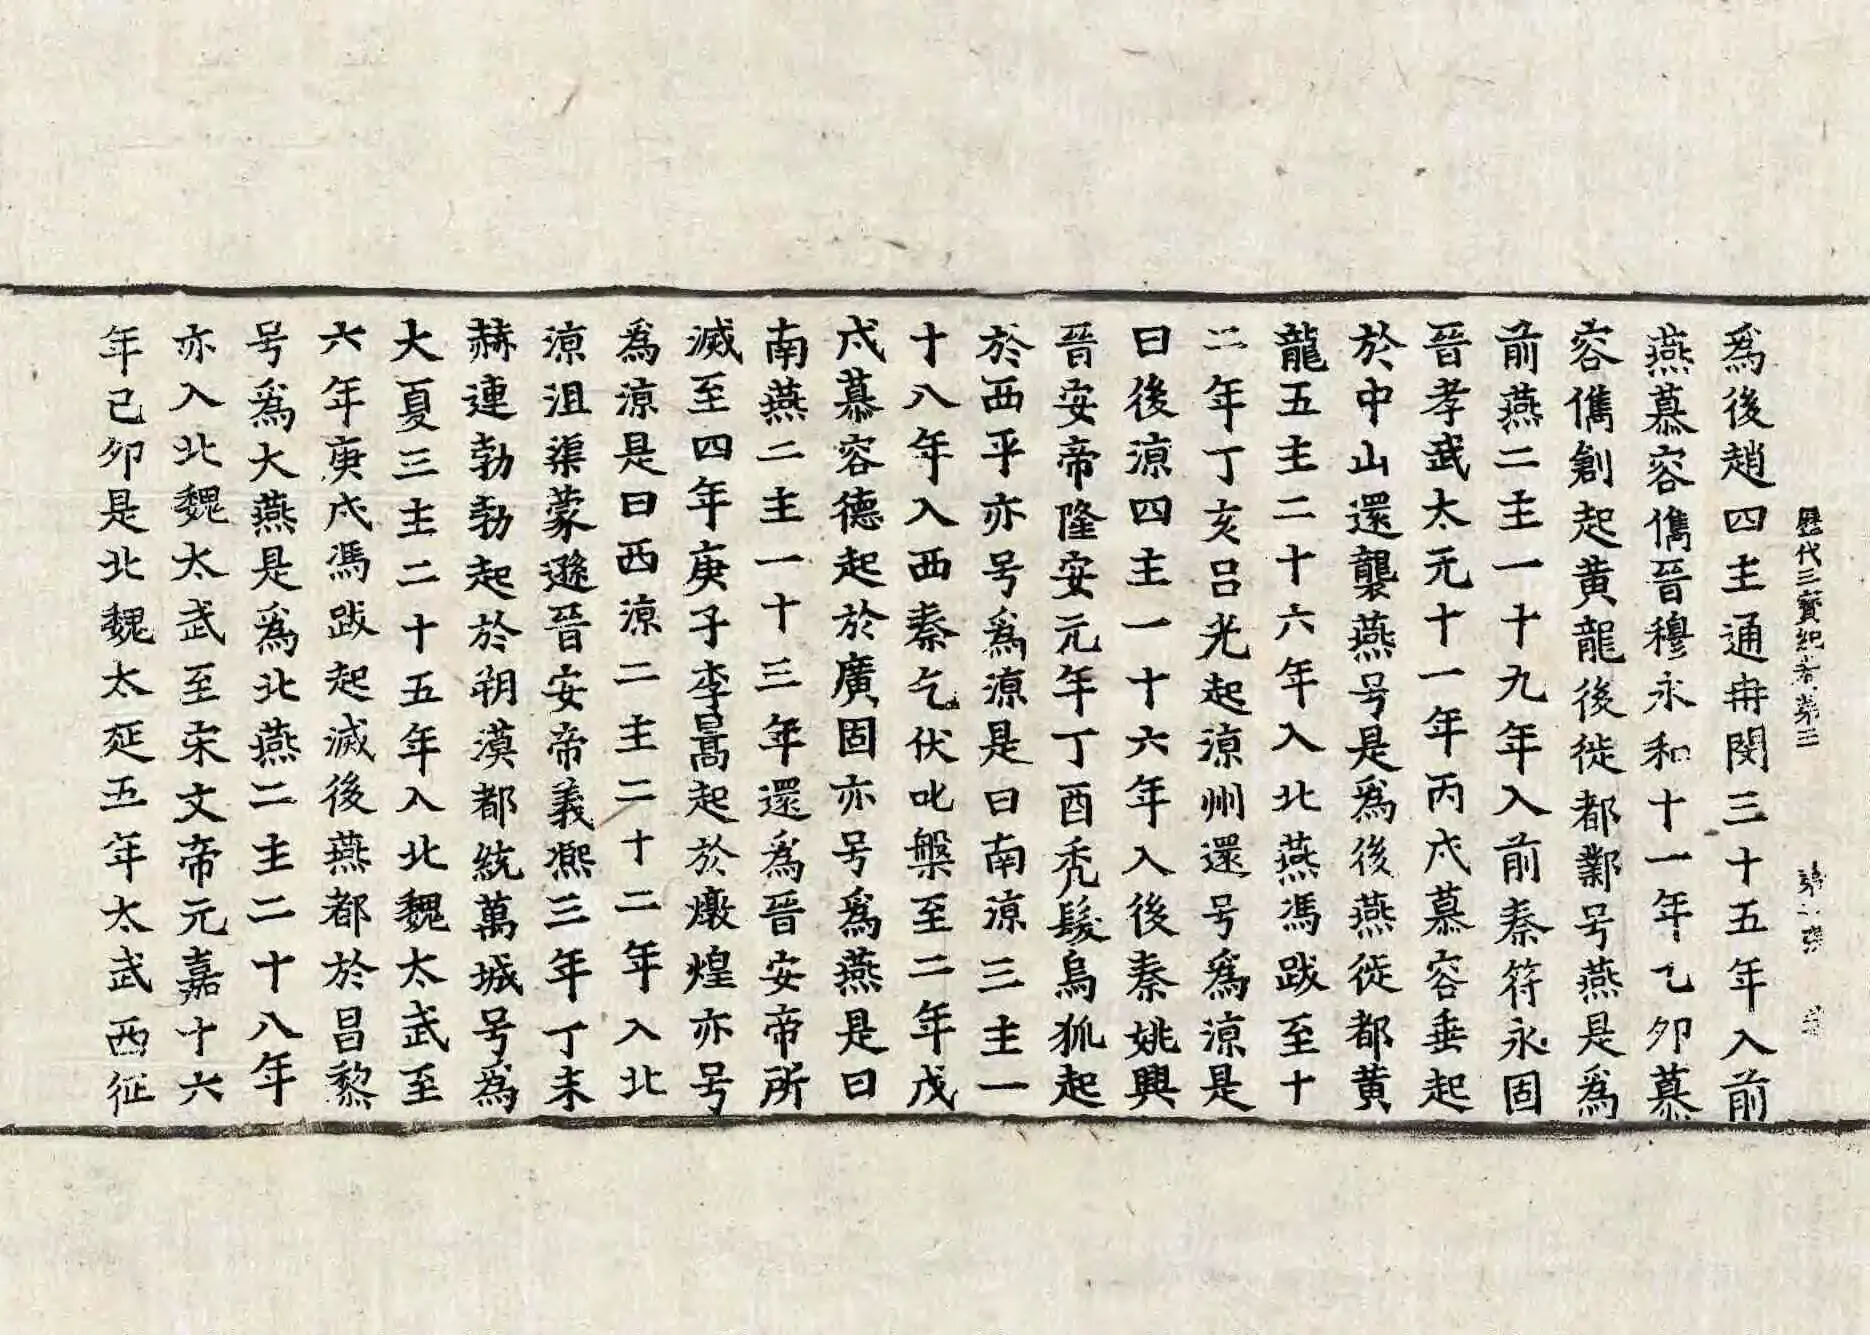 歷代三寶紀卷第三
爲後趙四主通冉閔三十五年入前
燕慕容儁晉穆永和十一年乙卯慕
容儁創起黃龍後徙都鄴号燕是爲
前燕二主一十九年入前秦苻永固
晉孝武太元十一年丙戌慕容垂起
於中山還襲燕号是爲後燕徙都黃
龍五主二十六年入北燕馮跋至十
二年丁亥呂光起涼州還号爲涼是
曰後涼四主一十六年入後秦姚興
晉安帝隆安元年丁酉禿髮烏狐起
於西平亦号爲涼是曰南涼三主一
十八年入西秦乞伏叱盤至二年戊
戌慕容德起於廣固亦号爲燕是曰
南燕二主一十三年還爲晉安帝所
滅至四年庚子李暠起於燉煌亦号
爲涼是曰西涼二主二十二年入北
涼沮渠蒙遜晉安帝義熙三年丁未
赫連勃勃起於朔漠都統萬城号爲
大夏三主二十五年入北魏太武至
六年庚戌馮跋起滅後燕都於昌黎
号爲大燕是爲北燕二主二十八年
亦入北魏太武至宋文帝元嘉十六
年己卯是北魏太延五年太武西征